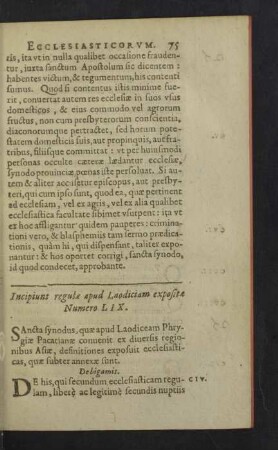 ECCLESIASTICORVM. 75
tis, ita vt in nulla qualibet occasione frauden-
tur, iuxta sanctum Apostolum sic dicentem:
habentes victum, & tegumentum, his contenti
sumus. Quod si contentus istis minime fue-
rit, conuertat autem res ecclesiæ in suos vsus
domesticos, & eius commodo vel agrorum
fructus, non cum presbyterorum conscientia,
diaconorumque pertractet, sed horum pote-
statem domesticis suis, aut propinquis, aut fra-
tribus, filiisque committat: vt per huiusmodi
personas occulte cæteræ lædantur ecclesiæ,
synodo prouinciæ pœnas iste persoluat. Si au-
tem & aliter accusetur episcopus, aut presby-
teri, qui cum ipso sunt, quod ea, quæ pertinent
ad ecclesiam, vel ex agris, vel ex alia qualibet
ecclesiastica facultate sibimet vsurpent: ita vt
ex hoc affligantur quidem pauperes: crimina-
tioni vero, & blasphemiis tam sermo prædica-
tionis, quàm hi, qui dispensant, taliter expo-
nantur: & hos oportet corrigi, sancta synodo,
id quod condecet, approbante.
Incipiunt regulæ apud Laodiciam expositæ
Numero LIX.
SAncta synodus, quæ apud Laodiceam Phry-
giæ Pacatianæ conuenit ex diuersis regio-
nibus Asiæ, definitiones exposuit ecclesiasti-
cas, quæ subter annexæ sunt.
De bigamis.
DE his, qui secundum ecclesiasticam regu- CIV.
lam, liberè ac legitimè secundis nuptiis